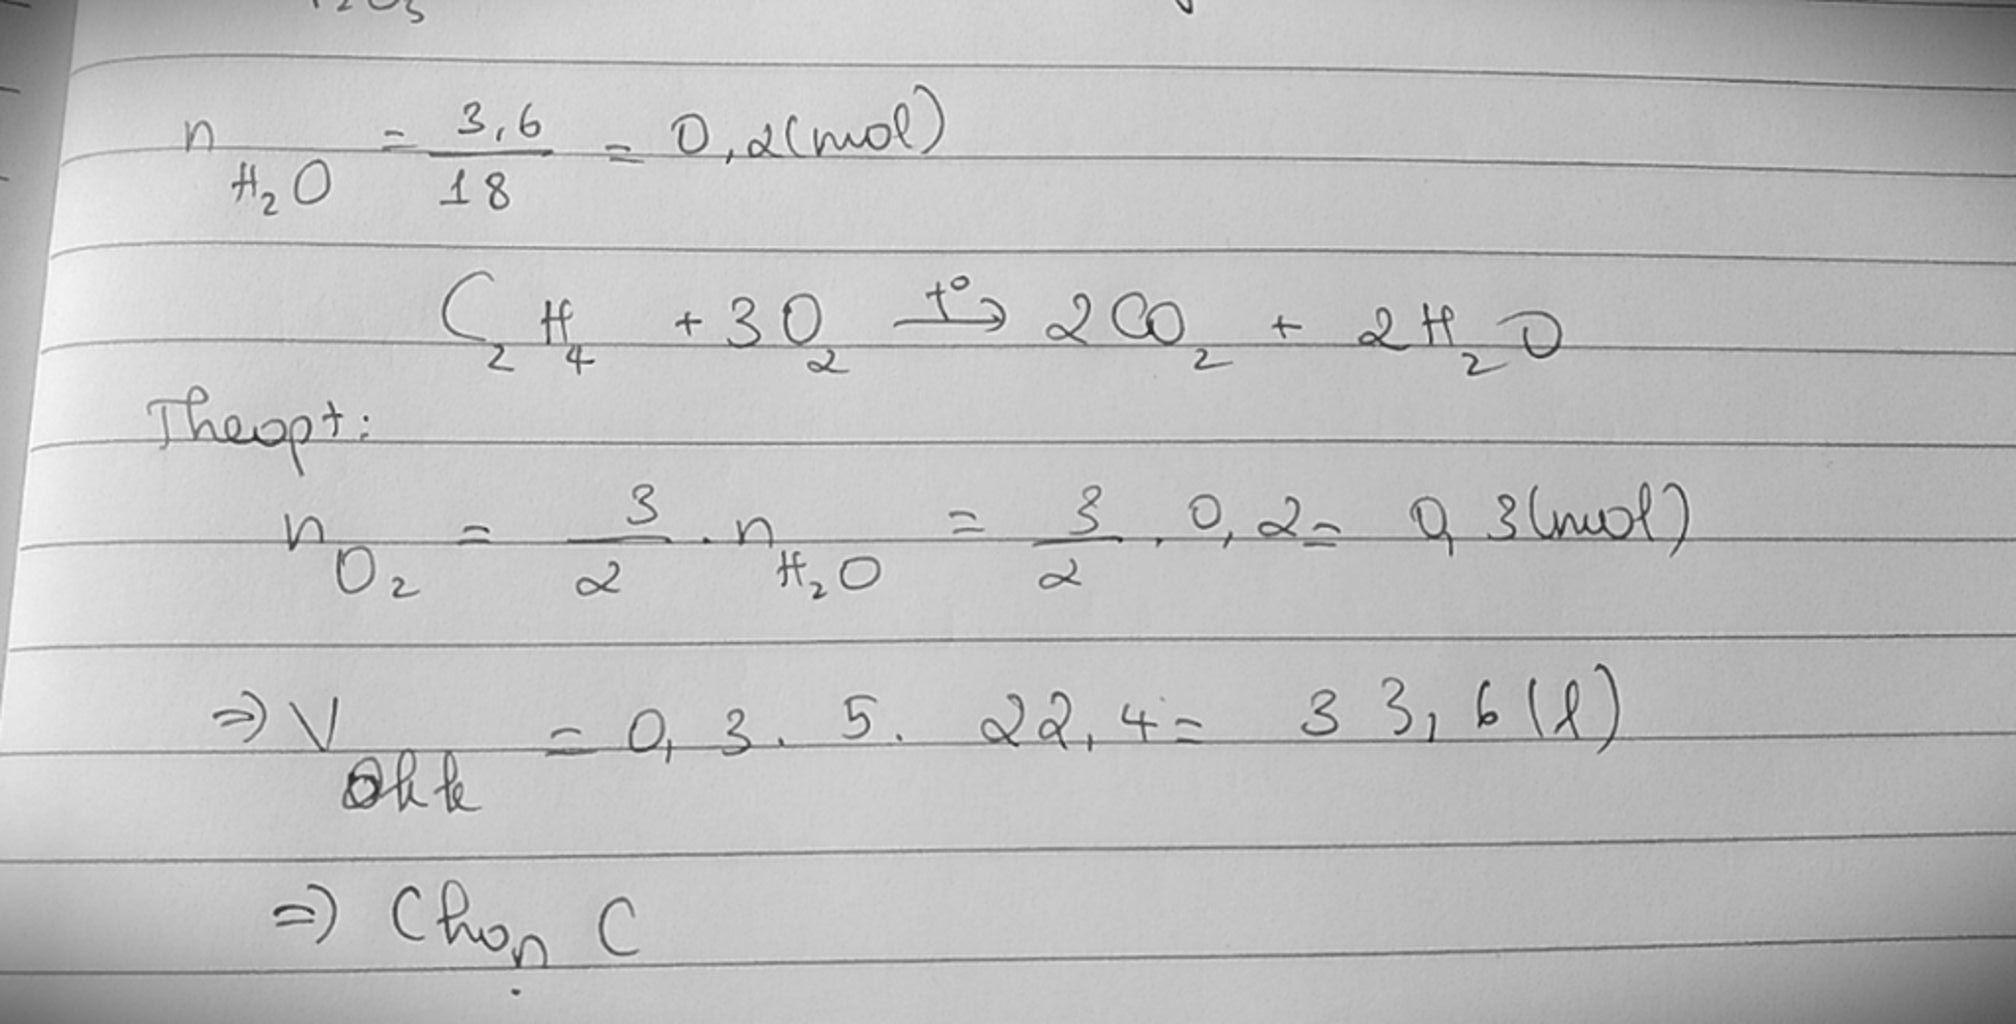 n H₂O = 3,6/18 = 0,2(mol)
C₂H₄ + 3O₂ →(t°) 2CO₂ + 2H₂O
Theo pt:
n O₂ = 3/2 . n H₂O = 3/2 . 0,2 = 0,3(mol)
⇒ V kk = 0,3 . 5 . 22,4 = 33,6 (l)
⇒ Chọn C